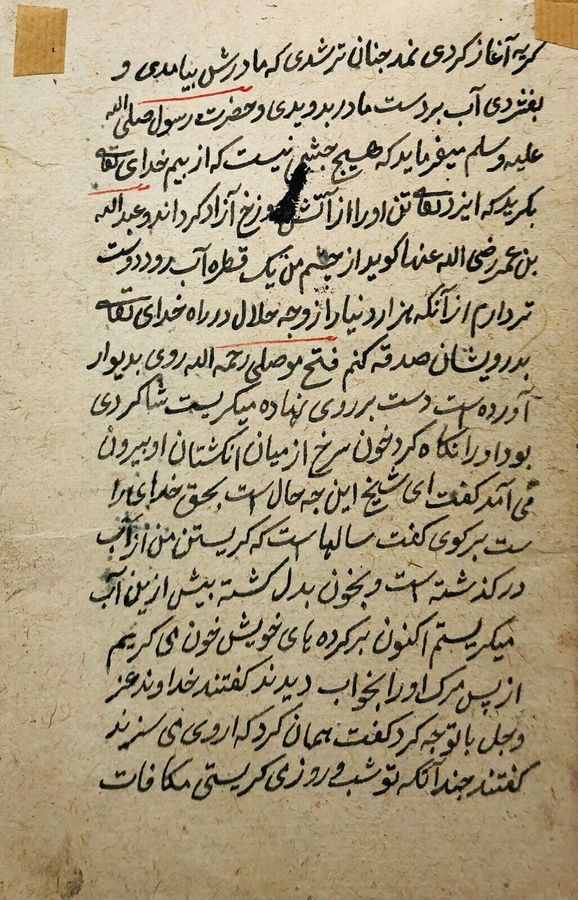 کریه آغاز کردی نمد چنان تر شدی که مادرش بیامدی و
بفشردی آب بر دست مادر بدویدی و حضرت رسول صلی الله
علیه وسلم میفرماید که هیچ چشمی نیست که از بیم خدای تعالی
بکرید که ایزد تعالی تن او را از آتش دوزخ آزاد کرداند و عبدالله
بن عمر رضی الله عنهما کوید از چشم من یک قطره آب رود دوست
تر دارم از آنکه هزار دنیار از وجه حلال در راه خدای تعالی
بدرویشان صدقه کنم فتح موصلی رحمه الله روی بدیوار
آورده است دست بر روی نهاده میکریست شاکردی
بود او را نکاه کرد خون سرخ از میان انکشتان او بیرون
می آمد کفت ای شیخ این چه حال است بحق خدای را
ست برکوی کفت سالها است که کریستن من از آب
در کذشته است و بخون بدل کشته بیش ازین آب
میکریستم اکنون بر کرده های خویش خون می کریم
از پس مرک او را بخواب دیدند کفتند خداوند عز
وجل با تو چه کرد کفت همان کرد که ازوی می سزند
کفتند چند آنکه تو شب و روزی کریستی مکافات